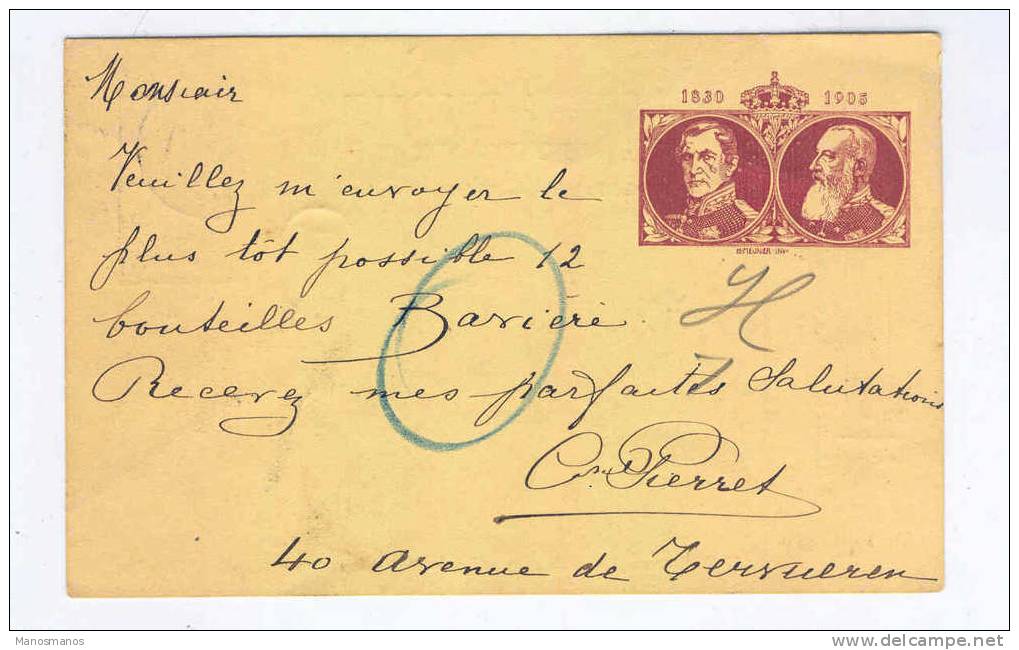 Monsieur
1830 1905
H. MEUNIER INV.
Veuillez m'envoyer le
plus tôt possible 12
bouteilles Bavière.
Recevez mes parfaites Salutations
Pierret
40 avenue de Tervueren
Manosmanos
delcampe.net